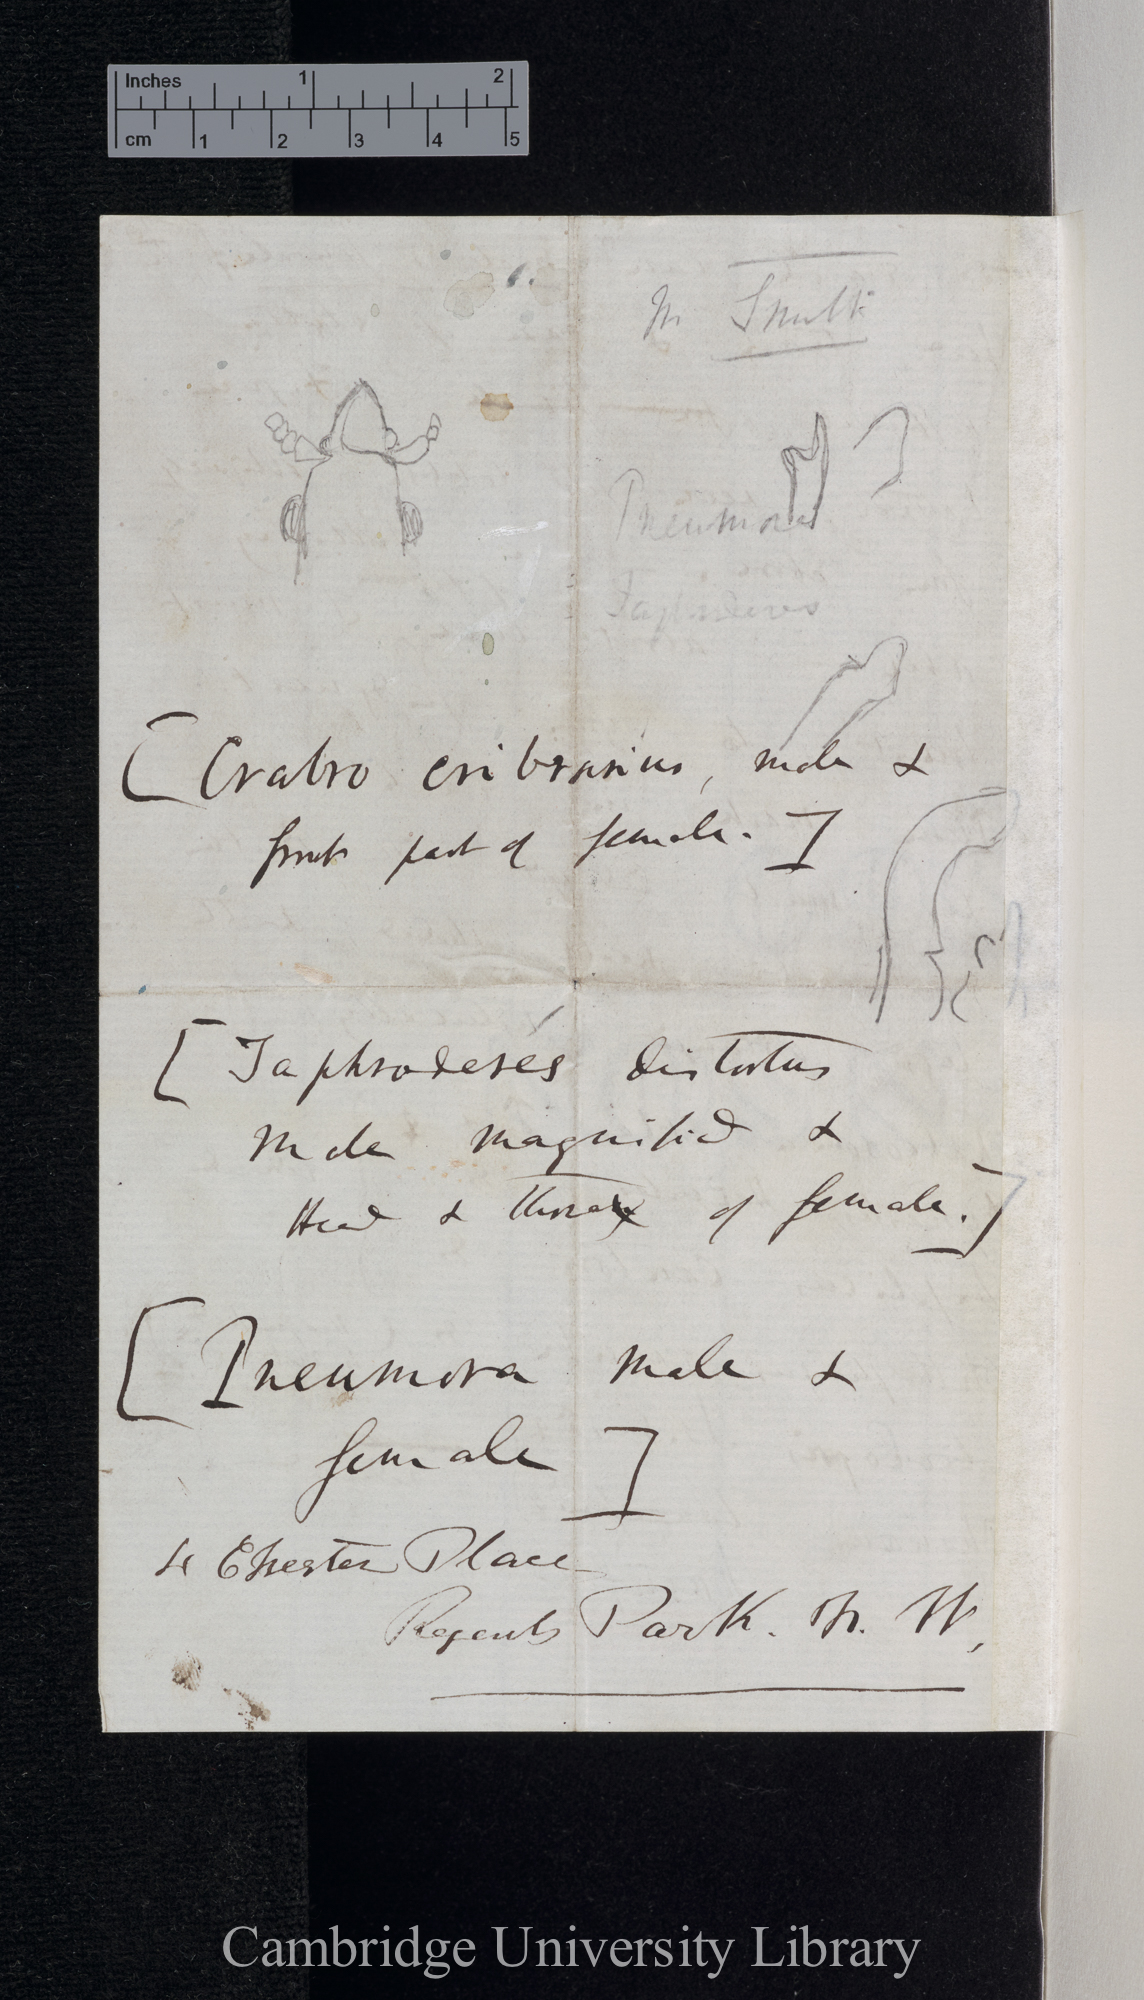 Inches 1 2
cm 1 2 3 4 5
Mr Smith
Pneumora
Taphroderes
[Crabro cribrarius, male &
front part of female.]
[Taphroderes distortus
Male magnified &
Head & thorax of female.]
[Pneumora male &
female]
4 Chester Place
Regents Park. N. W,
Cambridge University Library